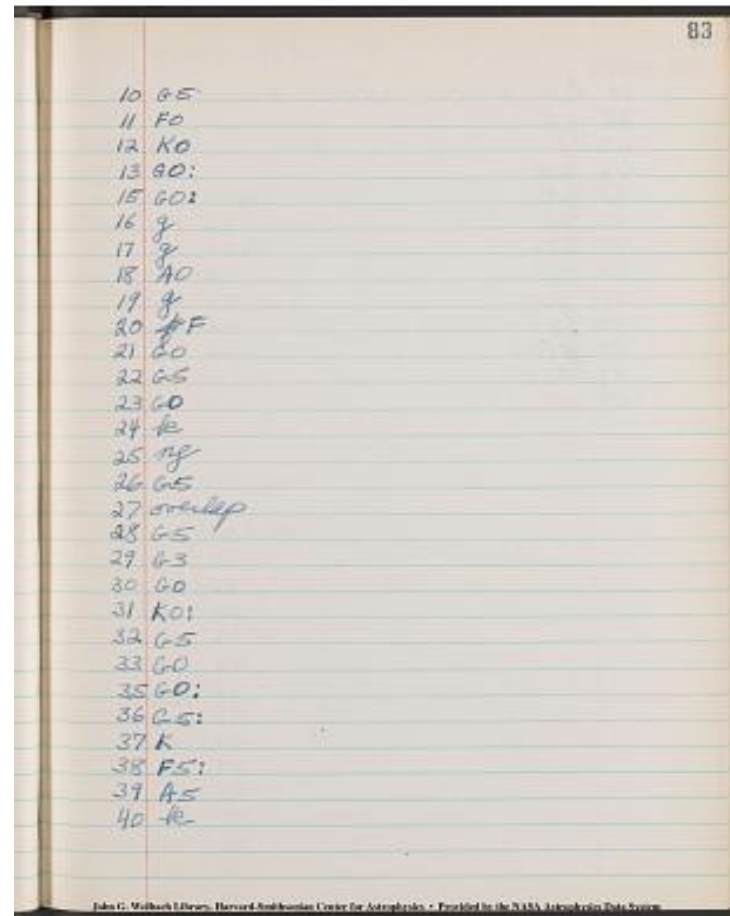 83
10 G5
11 F0
12 K0
13 G0:
15 G0:
16 g
17 g
18 A0
19 g
20 F
21 G0
22 G5
23 G0
24 k
25 ng
26 G5
27 overlap
28 G5
29 G3
30 G0
31 K0:
32 G5
33 G0
35 G0:
36 G5:
37 K
38 F5:
39 A5
40 k
John G. Wolbach Library, Harvard-Smithsonian Center for Astrophysics • Provided by the NASA Astrophysics Data System